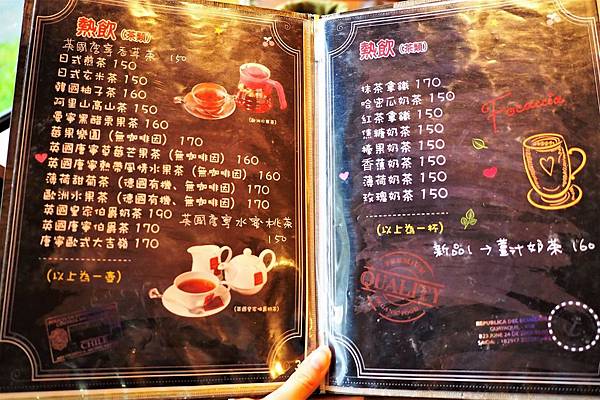 熱飲(茶類)
英國唐寧香草茶 150
日式煎茶 150
日式玄米茶 150
韓國柚子茶 160
阿里山高山茶 150
愛寧黑醋栗果茶 160
莓果樂園(無咖啡因) 170
英國唐寧草莓芒果茶(無咖啡因) 160
英國唐寧熱帶風情水果茶(無咖啡因) 160
薄荷甜菊茶(德國有機、無咖啡因) 170
歐洲水果茶(德國有機、無咖啡因) 170
英國皇家伯爵奶茶 190
英國唐寧水蜜桃茶
150
英國唐寧伯爵茶 170
唐寧歐式大吉嶺 170
(以上為一壺)
(英國皇家伯爵奶茶)
CHILE
熱飲(茶類)
抹茶拿鐵 170
哈密瓜奶茶 150
紅茶拿鐵 150
焦糖奶茶 150
榛果奶茶 150
香蕉奶茶 150
薄荷奶茶 150
玫瑰奶茶 150
(以上為一杯)
Focaccia
新品!→薑汁奶茶 160
QUALITY